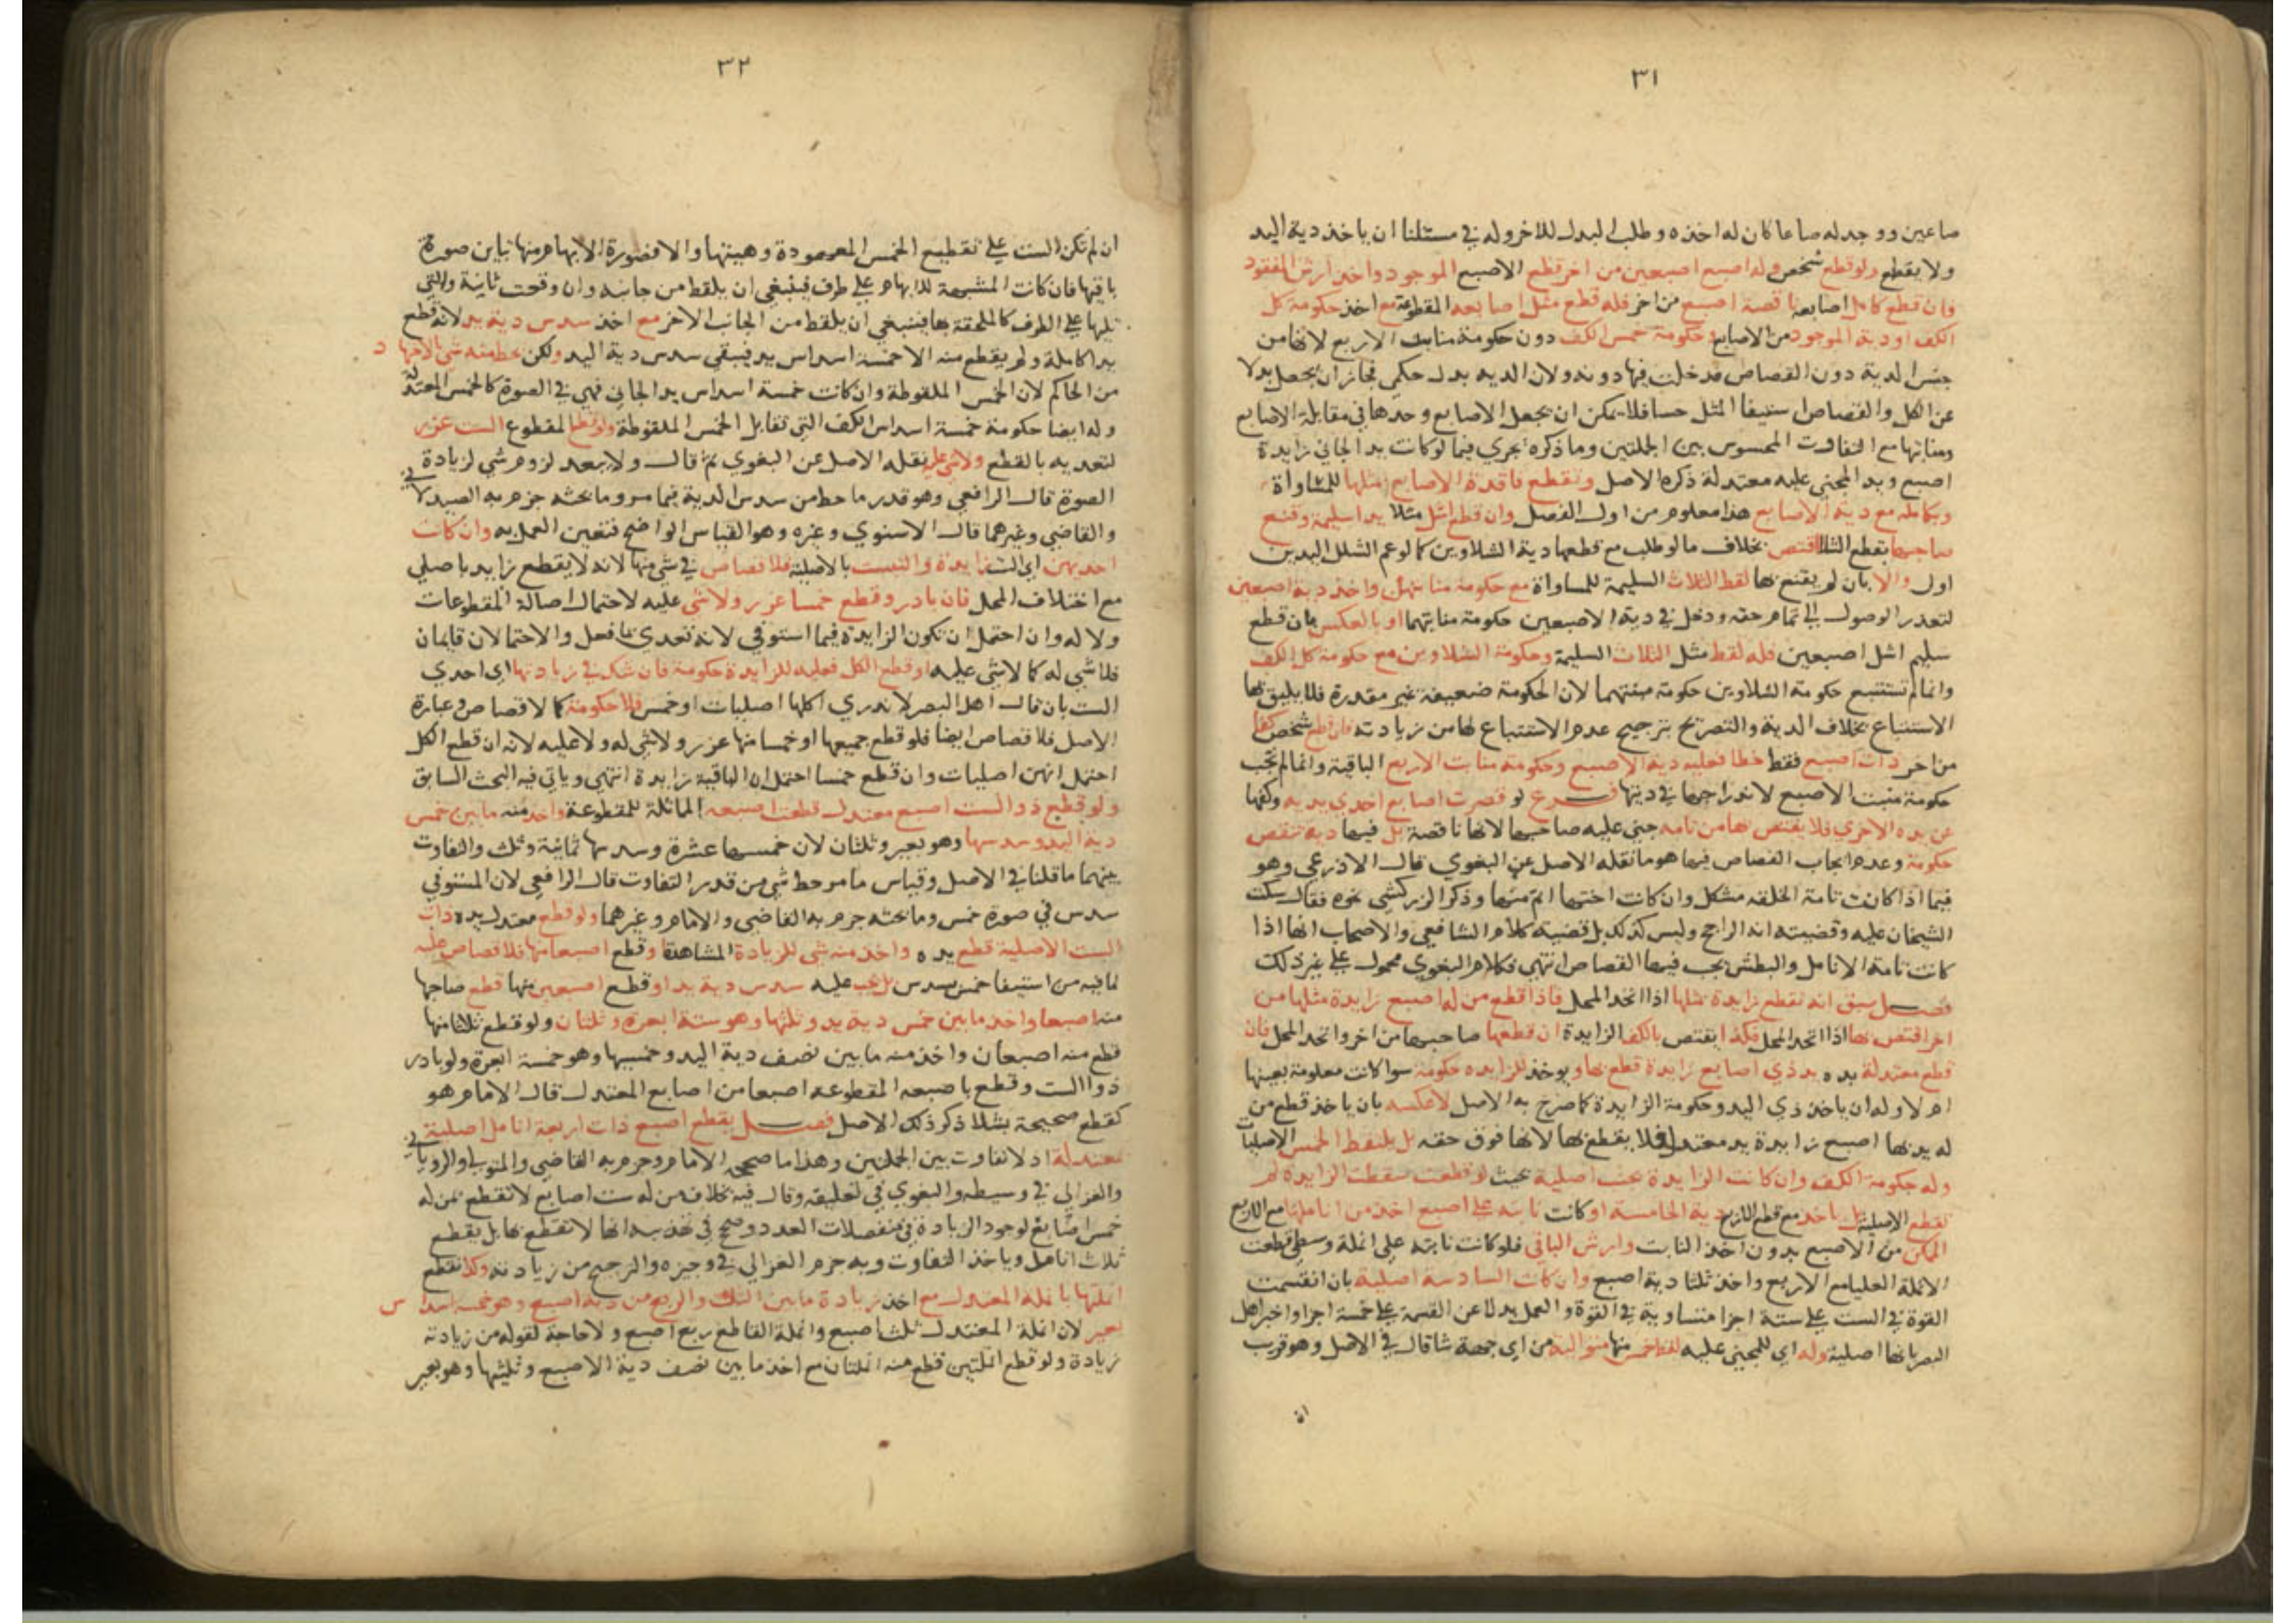 ٣١
صاعين ووجد له صاعا كان له اخذه وطلب البدل للاخر وله في مسئلتنا ان ياخذ دية اليد
ولا يقطع ولو قطع شخص وله اصبع اصبعين من اخر قطع الاصبع الموجود واخذ ارش المفقود
فان قطع كامل اصابعه ناقصة اصبع من اخر فله قطع مثل اصابعه المقطوعة مع اخذ حكومة كل
الكف او دية الموجود من الاصابع وحكومة خمس الكف دون حكومة منابت الاربع لانها من
جنس الدية دون القصاص فدخلت فيها دونه ولان الدية بدل حكمي فجاز ان يجعل بدلا
عن الكل والقصاص استيفا المثل حسا فلا يمكن ان يجعل الاصابع وحدها في مقابلة الاصابع
ومنابتها مع التفاوت المحسوس بين الجملتين وما ذكره يجري فيما لو كانت يد الجاني زايدة
اصبع ويد المجني عليه معتدلة ذكره الاصل وتقطع فاقدة الاصابع بمثلها للمساواة
وبكاملة مع دية الاصابع هذا معلوم من اول الفصل وان قطع اشل مثلا يدا سليمة وقنع
صاحبها بقطع الشلا اقتص بخلاف ما لو طلب مع قطعها دية الشلاوين كما لو عم الشلل اليدين
اول والا بان لم يقنع بها لقط الثلاث السليمة للمساواة مع حكومة منابتهن واخذ دية اصبعين
لتعذر الوصول الى تمام حقه ودخل في دية الاصبعين حكومة منابتهما او بالعكس بان قطع
سليم اشل اصبعين فله لقط مثل الثلاث السليمة وحكومة الشلاوين مع حكومة كل الكف
وانما لم تستتبع حكومة الشلاوين حكومة منبتهما لان الحكومة ضعيفة غير مقدرة فلا يليق بها
الاستتباع بخلاف الدية والتصريح بترجيح عدم الاستتباع لها من زيادته فان قطع شخص كفا
من اخر ذات اصبع فقط خطا فعليه دية الاصبع وحكومة منابت الاربع الباقية وانما لم تجب
حكومة منبت الاصبع لاندراجها في ديتها فرع لو قصرت اصابع احدى يديه وكفها
عن يده الاخري فلا يقتص بها من تامة جني عليه صاحبها لانها ناقصة بل فيها دية تنقص
حكومة وعدم ايجاب القصاص فيها هو ما نقله الاصل عن البغوي قال الاذرعي وهو
فيما اذا كانت تامة الخلقة مشكل وان كانت اختها اتم منها وذكر الزركشي نحوه فقال سكت
الشيخان عليه وقضيته انه الراجح وليس كذلك بل قضية كلام الشافعي والاصحاب انها اذا
كانت تامة الانامل والبطش يجب فيها القصاص انتهي فكلام البغوي محمول علي غير ذلك
فصل سبق انه تقطع زايدة بمثلها اذا اتحد المحل فاذا قطع من له اصبع زايدة مثلها من
اخر اقتص بها اذا اتحد المحل فكذا يقتص بالكف الزايدة ان قطعها صاحبها من اخر واتحد المحل فان
قطع معتدلة يده يد ذي اصابع زايدة قطع بها ويوخذ للزايده حكومة سوا كانت معلومة بعينها
ام لا وله ان ياخذ ذي اليد وحكومة الزايدة كما صرح به الاصل لا عكسه بان ياخذ قطع من
له يد بها اصبع زايدة يد معتدل فلا يقطع بها لانها فوق حقه بل يلتقط الخمس الاصليات
وله حكومة الكف وان كانت الزايدة بجنب اصلية بحيث لو قطعت سقطت الزايدة لم
تقطع الاصلية بل ياخذ مع قطع الاربع دية الخامسة او كانت نابتة علي اصبع اخذ من اناملها مع الاربع
الممكن من الاصبع بدون اخذ النابت وارش الباقي فلو كانت نابتة علي انملة وسطي قطعت
الانملة العليا مع الاربع واخذ ثلثا دية اصبع وان كانت السادسة اصلية بان انقسمت
القوة في الست علي ستة اجزا متساوية في القوة والعمل بدلا عن القسمة علي خمسة اجزا واخبر اهل
البصر بانها اصلية وله اي للمجني عليه لقط خمس منها متوالية من اي جهة شا قال في الاصل وهو قريب
٣٢
ان لم تكن الست علي تقطيع الخمس المعهودة وهيئتها والا فصورة الابهام منها تباين صورة
باقيها فان كانت المشبهة للابهام علي طرف فينبغي ان يلقط من جانبه وان وقعت ثانية والتي
تليها علي الطرف كالملحقة بها فينبغي ان يلقط من الجانب الاخر مع اخذ سدس دية يد لانه قطع
يدا كاملة ولم يقطع منه الا خمسة اسداس يد فيبقي سدس دية اليد ولكن يحط منه شي بالاجتهاد
من الحاكم لان الخمس الملقوطة وان كانت خمسة اسداس يد الجاني فهي في الصورة كالخمس المعتدلة
وله ايضا حكومة خمسة اسداس الكف التي تقابل الخمس الملقوطة ولو قطع المقطوع الست عزر
لتعديه بالقطع ولا شي عليه نقله الاصل عن البغوي ثم قال ولا يبعد لزوم شي لزيادة في
الصورة قال الرافعي وهو قدر ما حط من سدس الدية فيما مر وما بحثه جزم به الصيدلا
والقاضي وغيرهما قال الاسنوي وغيره وهو القياس الواضح فتعين العمل به وان كانت
احديهن اي الست زايدة والتبست بالاصلية فلا قصاص في شي منها لانه لا يقطع زايد باصلي
مع اختلاف المحل فان بادر وقطع خمسا عزر ولا شي عليه لاحتمال اصالة المقطوعات
ولا له وان احتمل ان تكون الزايدة فيما استوفي لانه تعدي بما فعل والاحتمالان قايمان
فلا شي له كما لا شي عليه او قطع الكل فعليه للزايدة حكومة فان شك في زيادتها اي احدي
الست بان قال اهل البصر لا ندري اكلها اصليات او خمس فلا حكومة كما لا قصاص وعبارة
الاصل فلا قصاص ايضا فلو قطع جميعها او خمسا منها عزر ولا شي له ولا عليه لانه ان قطع الكل
احتمل انهن اصليات وان قطع خمسا احتمل ان الباقية زايدة انتهي وياتي فيه البحث السابق
ولو قطع ذو الست اصبع معتدل قطعت اصبعه المماثلة للمقطوعة واخذ منه ما بين خمس
دية اليد وسدسها وهو بعير وثلثان لان خمسها عشرة وسدسها ثمانية وثلث والتفاوت
بينهما ما قلنا في الاصل وقياس ما مر حط شي من قدر التفاوت قال الرافعي لان المستوفي
سدس في صورة خمس وما بحثه جزم به القاضي والامام وغيرهما ولو قطع معتدل يده ذات
الست الاصلية قطع يده واخذ منه شي للزيادة المشاهدة او قطع اصبعا منها فلا قصاص عليه
لما فيه من استيفا خمس بسدس بل يجب عليه سدس دية يد او قطع اصبعين منها قطع صاحبها
منه اصبعا واخذ ما بين خمس دية يد وثلثها وهو ستة ابعرة وثلثان ولو قطع ثلاثا منها
قطع منه اصبعان واخذ منه ما بين نصف دية اليد وخمسيها وهو خمسة ابعرة ولو بادر
ذو الست وقطع باصبعه المقطوعه اصبعا من اصابع المعتدل قال الامام هو
كقطع صحيحة بشلا ذكر ذلك الاصل فصل يقطع اصبع ذات اربعة انامل اصلية في
معتدلة اذ لا تفاوت بين الجملتين وهذا ما صححه الامام وجزم به القاضي والمتولي والروياني
والغزالي في وسيطه والبغوي في تعليقه وقال فيه بخلاف من له ست اصابع لا تقطع بمن له
خمس اصابع لوجود الزيادة في منفصلات العدد وصحح في تهذيبه انها لا تقطع بها بل يقطع
ثلاث انامل وياخذ التفاوت وبه جزم الغزالي في وجيزه والترجيح من زيادته وكذا تقطع
انملتها بانملة المعتدل مع اخذ زيادة ما بين الثلث والربع من دية اصبع وهو خمسة اسداس
بعير لان انملة المعتدل ثلث اصبع وانملة القاطع ربع اصبع ولا حاجة لقوله من زيادته
زيادة ولو قطع انملتين قطع منه انملتان مع اخذ ما بين نصف دية الاصبع وثلثيها وهو بعير